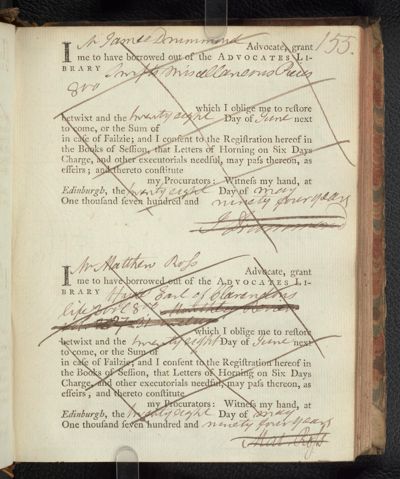 155.
I Mr James Drummond Advocate, grant
me to have borrowed out of the ADVOCATES LI-
BRARY Swifts Miscellaneous Pieces
8vo
which I oblige me to reſtore
betwixt and the twenty eight Day of June next
to come, or the Sum of
in caſe of Failzie; and I conſent to the Regiſtration hereof in
the Books of Seſſion, that Letters of Horning on Six Days
Charge, and other executorials needful, may paſs thereon, as
effeirs; and thereto conſtitute
my Procurators: Witneſs my hand, at
Edinburgh, the twenty eight Day of may
One thouſand ſeven hundred and ninety four years
J Drummond
I Mr Matthew Roſs Advocate, grant
me to have borrowed out of the ADVOCATES LI-
BRARY Hyde Earl of Clarendons
life
which I oblige me to reſtore
betwixt and the twenty eight Day of June next
to come, or the Sum of
in caſe of Failzie; and I conſent to the Regiſtration hereof in
the Books of Seſſion, that Letters of Horning on Six Days
Charge, and other executorials needful, may paſs thereon, as
effeirs, and thereto conſtitute
my Procurators: Witneſs my hand, at
Edinburgh, the twenty eight Day of may
One thouſand ſeven hundred and ninety four years
Mat. Roſs